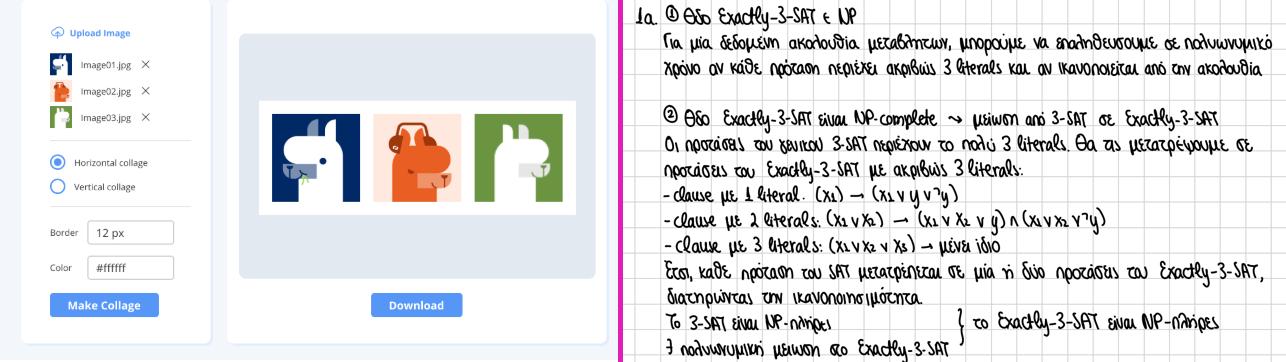 Upload Image
Image01.jpg
Image02.jpg
Image03.jpg
Horizontal collage
Vertical collage
Border 12 px
Color #ffffff
Make Collage
Download
1a. ① Θδο Exactly-3-SAT ∈ NP
Για μία δεδομένη ακολουθία μεταβλητων, μπορούμε να επαληθευσουμε σε πολυωνυμικό
χρόνο αν κάθε πρόταση περιέχει ακριβώς 3 literals και αν ικανοποιείται από την ακολουθία
② Θδο Exactly-3-SAT είναι NP-complete ⤳ μείωση από 3-SAT σε Exactly-3-SAT
Οι προτάσεις του γενικού 3-SAT περιέχουν το πολύ 3 literals. Θα τις μετατρέψουμε σε
προτάσεις του Exactly-3-SAT με ακριβώς 3 literals:
- clause με 1 literal: (x1) → (x1 ∨ y ∨ ¬y)
- clause με 2 literals: (x1 ∨ x2) → (x1 ∨ x2 ∨ y) ∧ (x1 ∨ x2 ∨ ¬y)
- clause με 3 literals: (x1 ∨ x2 ∨ x3) → μένει ίδιο
Έτσι, καθε πρόταση του SAT μετατρέπεται σε μία ή δύο προτάσεις του Exactly-3-SAT,
διατηρώντας την ικανοποιησιμότητα.
Το 3-SAT είναι NP-πλήρες } το Exactly-3-SAT είναι NP-πλήρες
∃ πολυωνυμική μειωση στο Exactly-3-SAT